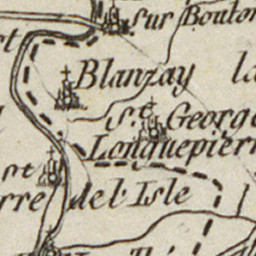 sur Bouton
Blanzay
la
St. George
Longuepierre
St
rre de l'Isle